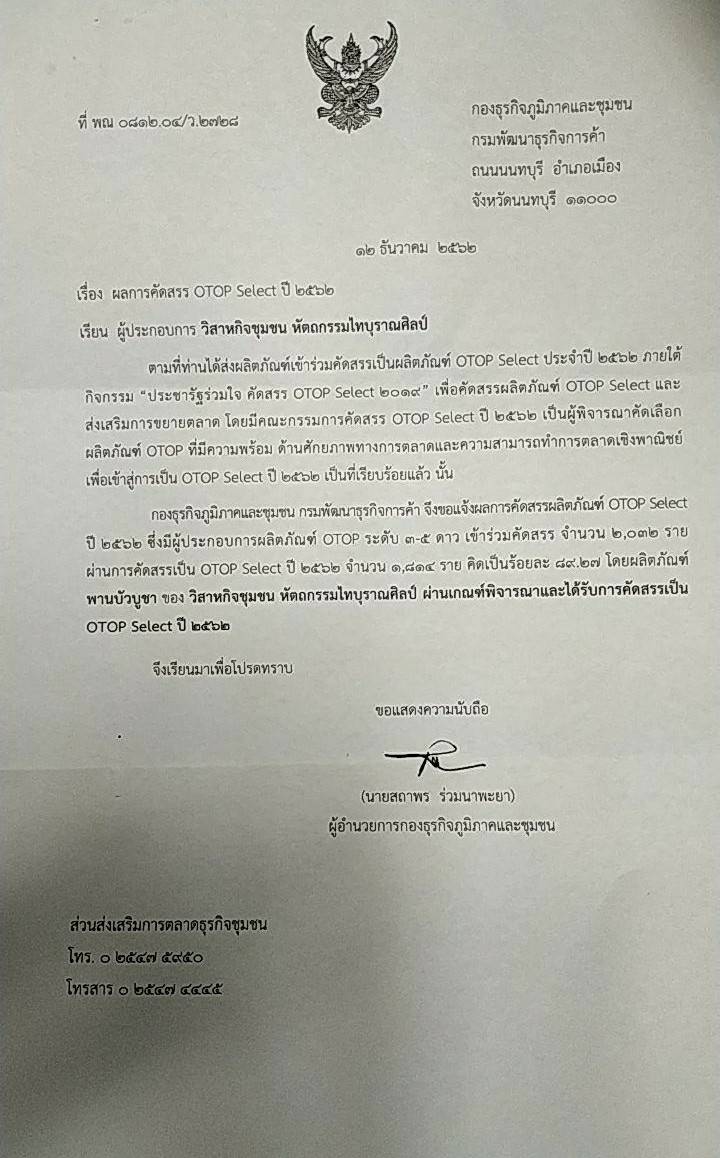 ที่ พณ ๐๘๑๒.๐๔/ว.๒๗๒๘
กองธุรกิจภูมิภาคและชุมชน
กรมพัฒนาธุรกิจการค้า
ถนนนนทบุรี อำเภอเมือง
จังหวัดนนทบุรี ๑๑๐๐๐
๑๒ ธันวาคม ๒๕๖๒
เรื่อง ผลการคัดสรร OTOP Select ปี ๒๕๖๒
เรียน ผู้ประกอบการ วิสาหกิจชุมชน หัตถกรรมไทบุราณศิลป์
ตามที่ท่านได้ส่งผลิตภัณฑ์เข้าร่วมคัดสรรเป็นผลิตภัณฑ์ OTOP Select ประจำปี ๒๕๖๒ ภายใต้
กิจกรรม “ประชารัฐร่วมใจ คัดสรร OTOP Select ๒๐๑๙” เพื่อคัดสรรผลิตภัณฑ์ OTOP Select และ
ส่งเสริมการขยายตลาด โดยมีคณะกรรมการคัดสรร OTOP Select ปี ๒๕๖๒ เป็นผู้พิจารณาคัดเลือก
ผลิตภัณฑ์ OTOP ที่มีความพร้อม ด้านศักยภาพทางการตลาดและความสามารถทำการตลาดเชิงพาณิชย์
เพื่อเข้าสู่การเป็น OTOP Select ปี ๒๕๖๒ เป็นที่เรียบร้อยแล้ว นั้น
กองธุรกิจภูมิภาคและชุมชน กรมพัฒนาธุรกิจการค้า จึงขอแจ้งผลการคัดสรรผลิตภัณฑ์ OTOP Select
ปี ๒๕๖๒ ซึ่งมีผู้ประกอบการผลิตภัณฑ์ OTOP ระดับ ๓-๕ ดาว เข้าร่วมคัดสรร จำนวน ๒,๐๓๒ ราย
ผ่านการคัดสรรเป็น OTOP Select ปี ๒๕๖๒ จำนวน ๑,๘๑๔ ราย คิดเป็นร้อยละ ๘๙.๒๗ โดยผลิตภัณฑ์
พานบัวบูชา ของ วิสาหกิจชุมชน หัตถกรรมไทบุราณศิลป์ ผ่านเกณฑ์พิจารณาและได้รับการคัดสรรเป็น
OTOP Select ปี ๒๕๖๒
จึงเรียนมาเพื่อโปรดทราบ
ขอแสดงความนับถือ
(นายสถาพร ร่วมนาพะยา)
ผู้อำนวยการกองธุรกิจภูมิภาคและชุมชน
ส่วนส่งเสริมการตลาดธุรกิจชุมชน
โทร. ๐ ๒๕๔๗ ๕๙๕๐
โทรสาร ๐ ๒๕๔๗ ๔๔๔๕